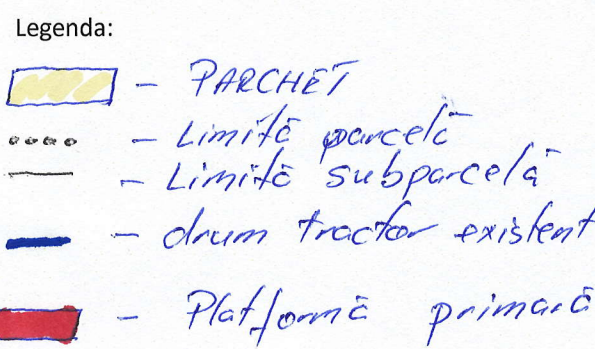 Legenda:
– PARCHET
– Limită parcelă
– Limită subparcelă
– drum tractor existent
– Platformă primară